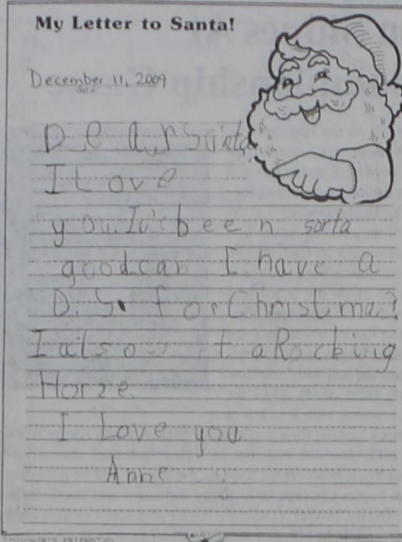 My Letter to Santa!
December 11, 2009
Dear Santa
I Love
you. Iv'e been sorta
good.can I have a
D.S. for Christmas?
I alsow t a Rocking
Horze
I Love you
Anne